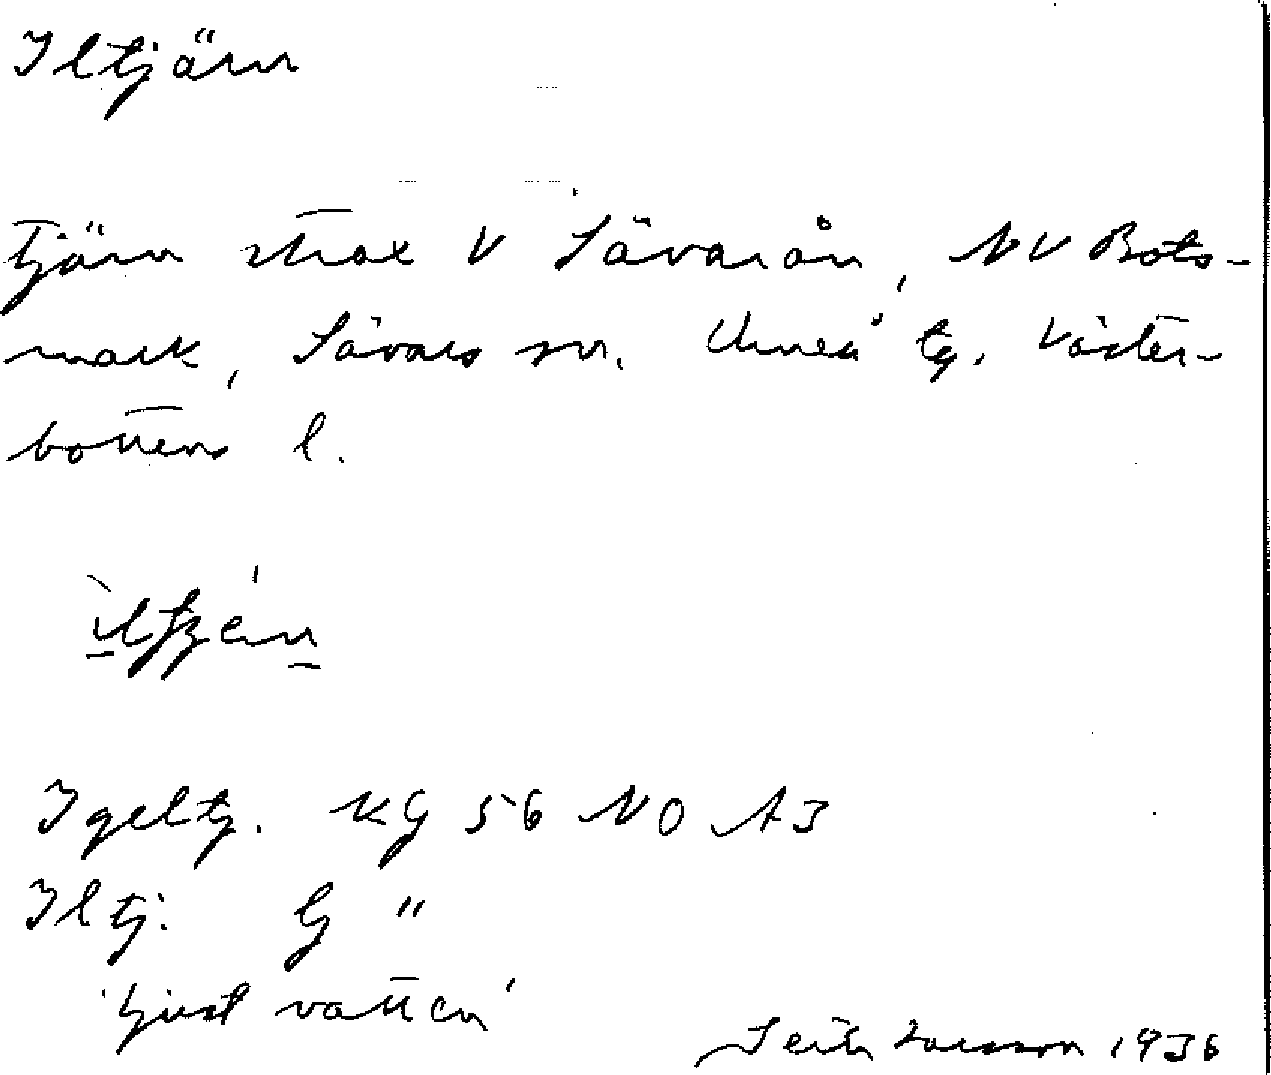 Iltjärn
Tjärn strax V Sävarån, NV Bots-
mark, Sävars sn. Umeå tg. Väster-
bottens l.
Igeltj. KG 56 NO A3
Iltj. G "
'ljust vatten'
Seth Larsson 1936